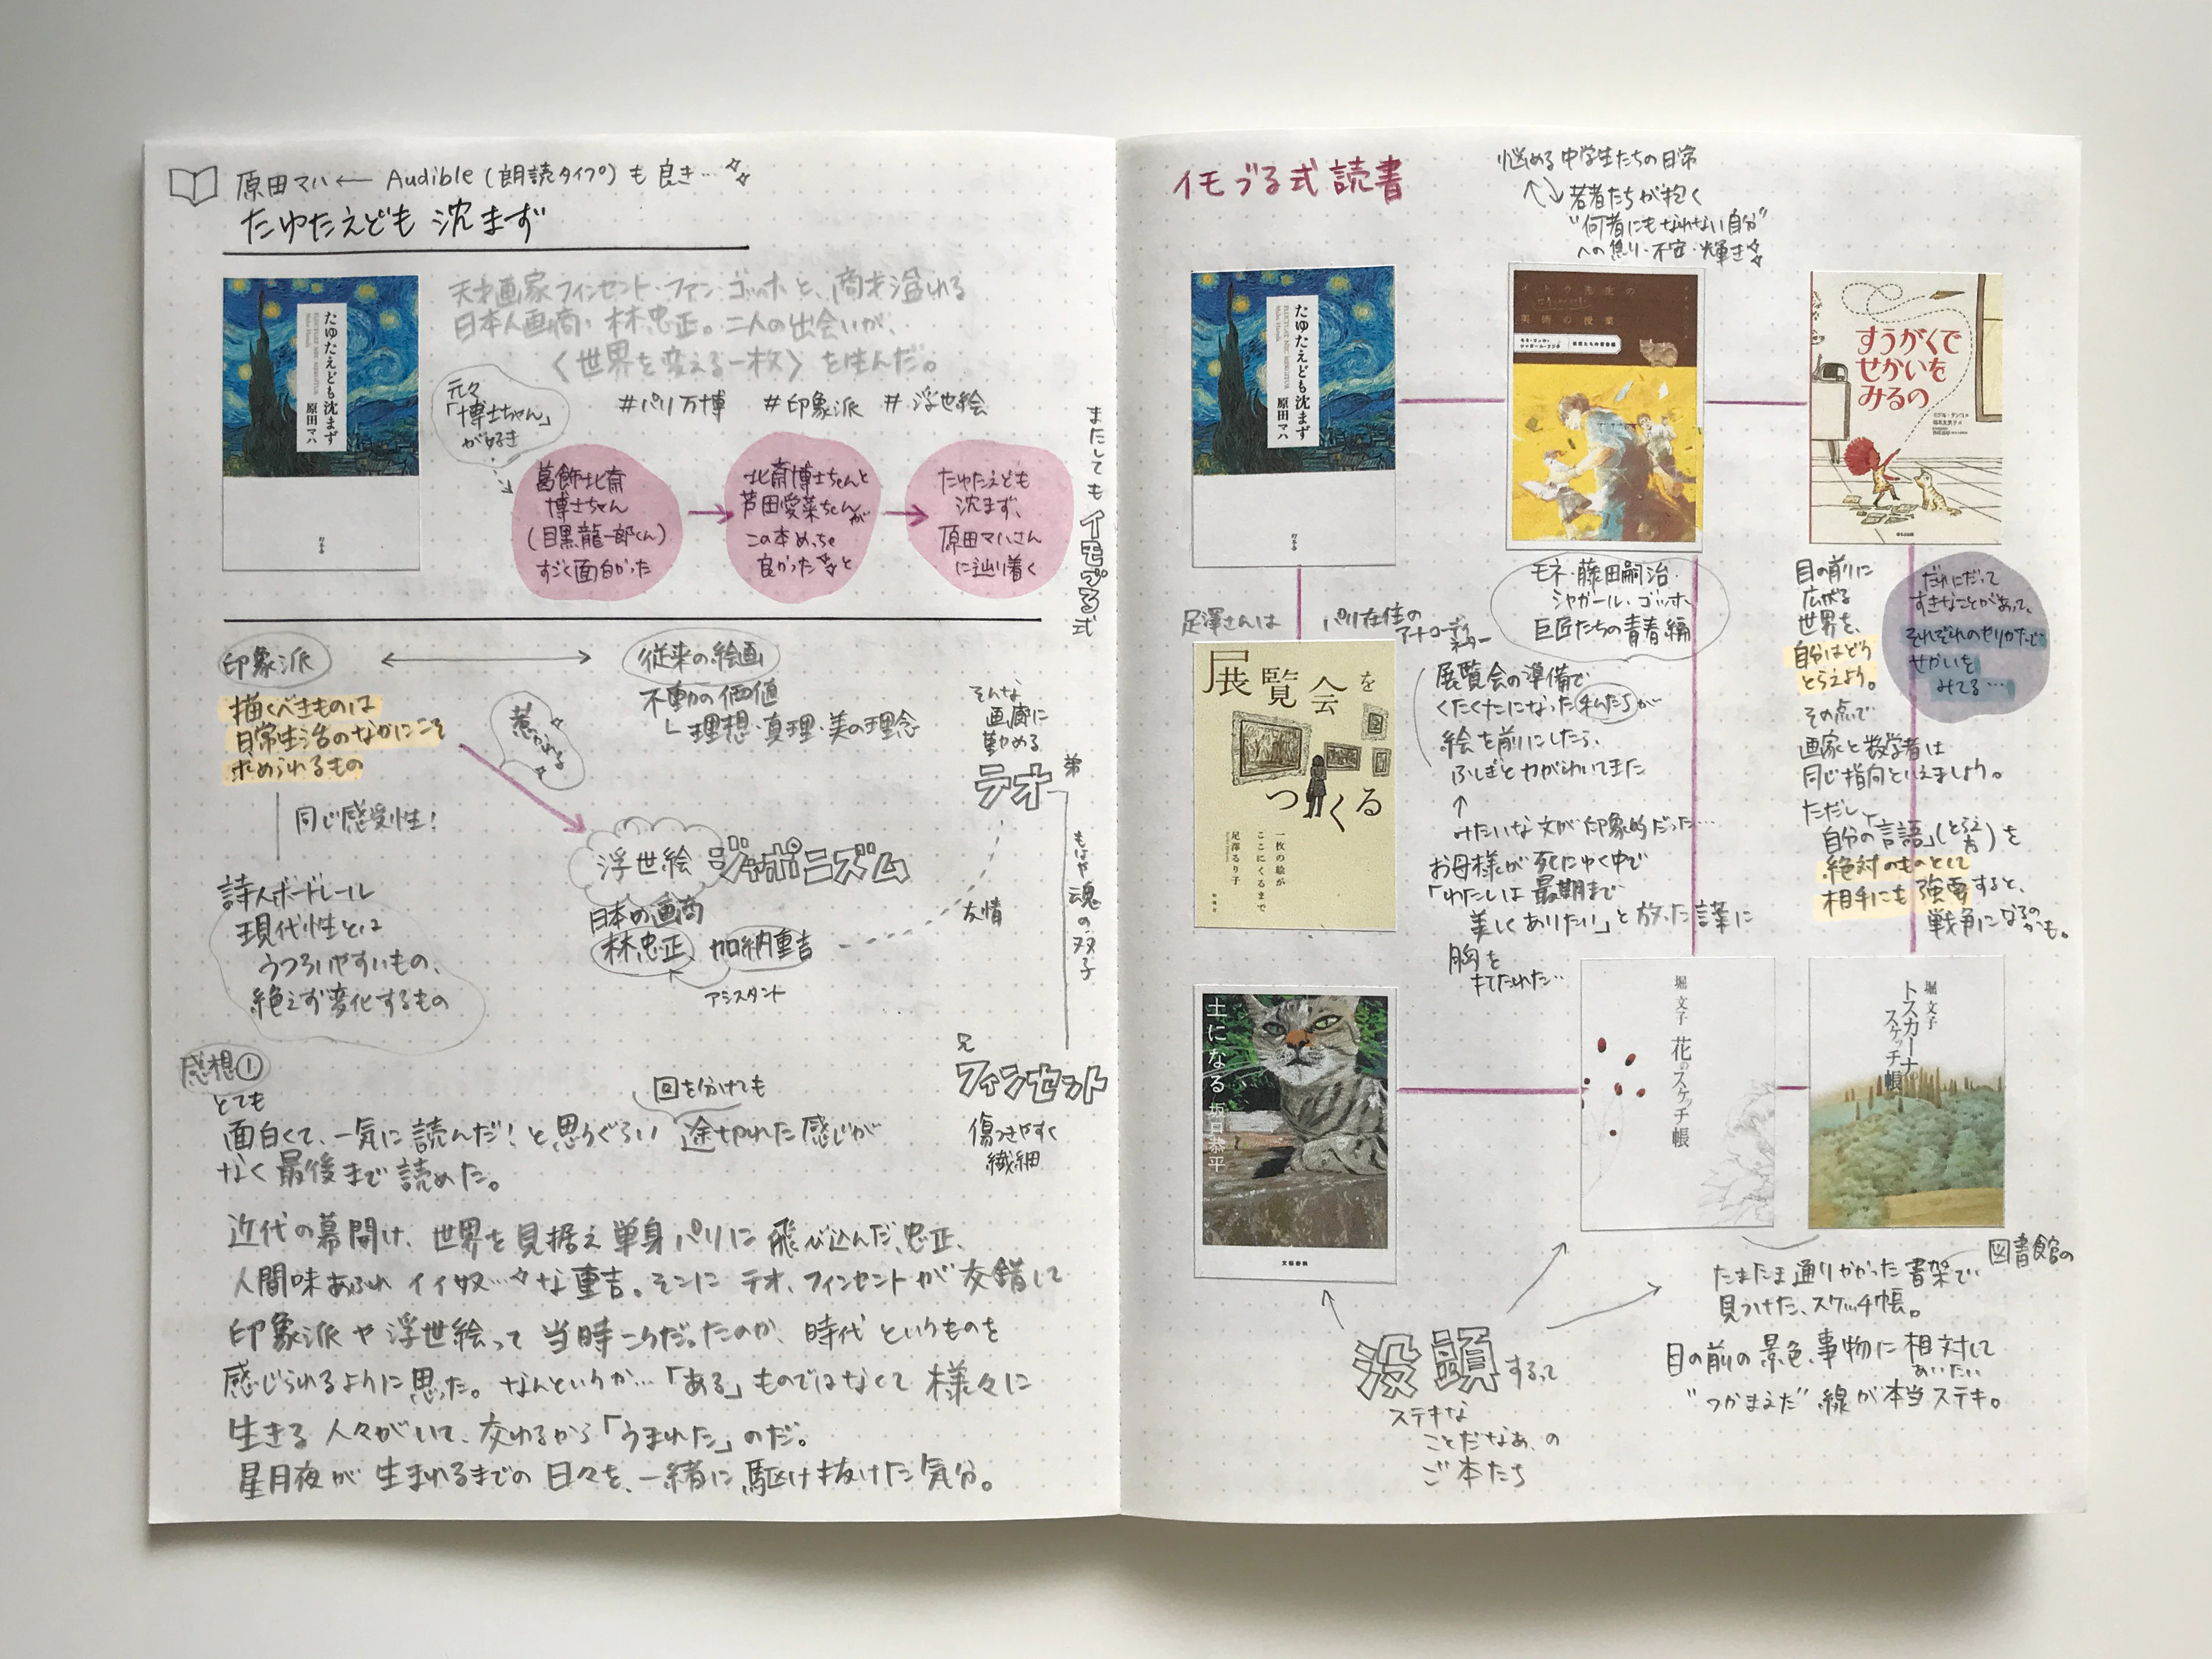 原田マハ ← Audible (朗読タイプ) も 良き…
たゆたえども 沈まず
たゆたえども沈まず
原田マハ
幻冬舎
天才画家フィンセント・ファン・ゴッホと、商才溢れる
日本人画商・林忠正。二人の出会いが、
〈世界を変える一枚〉を生んだ。
#パリ万博 #印象派 #浮世絵
元々
「博士ちゃん」
が好き
葛飾北斎
博士ちゃん
(目黒龍一郎くん)
すごく面白かった
北斎博士ちゃんと
芦田愛菜ちゃんが
この本めっちゃ
良かった と
たゆたえども
沈まず、
原田マハさん
に辿り着く
またしても イモづる式
印象派
従来の絵画
描くべきものは
日常生活のなかにこそ
求められるもの
惹かれる
不動の価値
理想・真理・美の理念
同じ感受性!
詩人ボードレール
現代性とは
うつろいやすいもの、
絶えず変化するもの
浮世絵 ジャポニズム
日本の画商
林忠正 加納重吉
アシスタント
友情
そんな
画商に
勤める
テオ
弟
もはや 魂の双子
兄
フィンセント
傷つきやすく
繊細
感想①
とても
面白くて、一気に読んだ!と思うぐらい 途切れた感じが
回を分けても
なく最後まで読めた。
近代の幕開け、世界を見据え単身パリに飛び込んだ、忠正、
人間味あふれ イイ奴…な重吉。そこに テオ、フィンセントが交錯して
印象派や浮世絵って当時こうだったのか、時代というものを
感じられるように思った。なんというか…「ある」ものではなくて様々に
生きる人々がいて、交わるから「うまれた」のだ。
星月夜が生まれるまでの日々を、一緒に駆け抜けた気分。
イモづる式読書
悩める中学生たちの日常
若者たちが抱く
"何者にもなれない自分"
への焦り・不安・輝き
たゆたえども沈まず
原田マハ
幻冬舎
イトウ先生の
美術の授業
すうがくで
せかいを
みるの
モネ・藤田嗣治・
シャガール・ゴッホ
巨匠たちの青春編
足澤さんは パリ在住の
コーディ
ネーター
展覧会を
つくる
一枚の絵が
ここにくるまで
足澤るり子
展覧会の準備で
くたくたになった私たちが
絵を前にしたら、
ふしぎと力がわいてきた
みたいな文が印象的だった…
お母様が死にゆく中で
「わたしは最期まで
美しくありたい」と放った言葉に
胸を
打たれた…
目の前に
広がる
世界を、
自分はどう
とらえよう。
その点で
画家と数学者は
同じ指向といえましょう。
ただし、
「自分の言語」(とらえ方)を
絶対のものとして
相手にも強要すると、
戦争になるの
かも。
だれにだって
すきなことがあって、
それぞれのやりかたで
せかいを
みてる…
土になる 坂口恭平
文藝春秋
堀文子 花のスケッチ帳
堀文子
トスカーナの
スケッチ帳
没頭するって
ステキな
ことだなあ、の
ご本たち
たまたま通りかかった書架で
図書館の
見つけた、スケッチ帳。
目の前の景色、事物に相対して
あいたい
"つかまえた"線が本当ステキ。